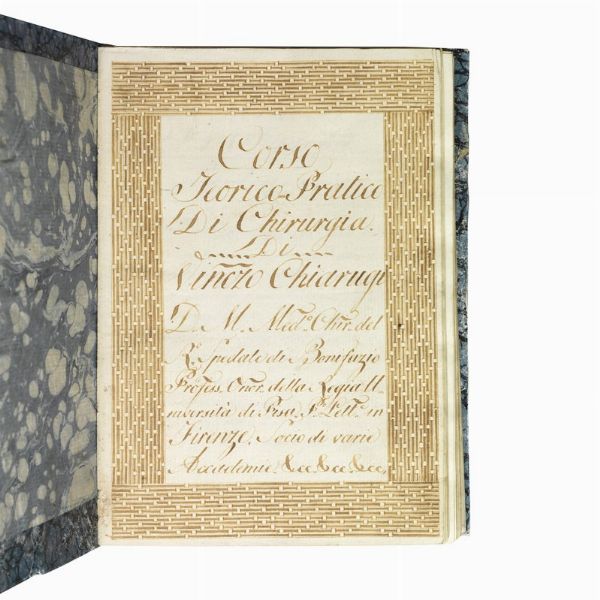 Corso
Teorico-Pratico
Di Chirurgia.
Di
Vinczo Chiarugi
D. M. Medo. Chir. del
Ro. Spedale di Bonifazio
Profess. Onor. della Regia U-
niversità di Pisa, Po. Letto. in
Firenze, Socio di varie
Accademie. &cc. &cc. &cc.